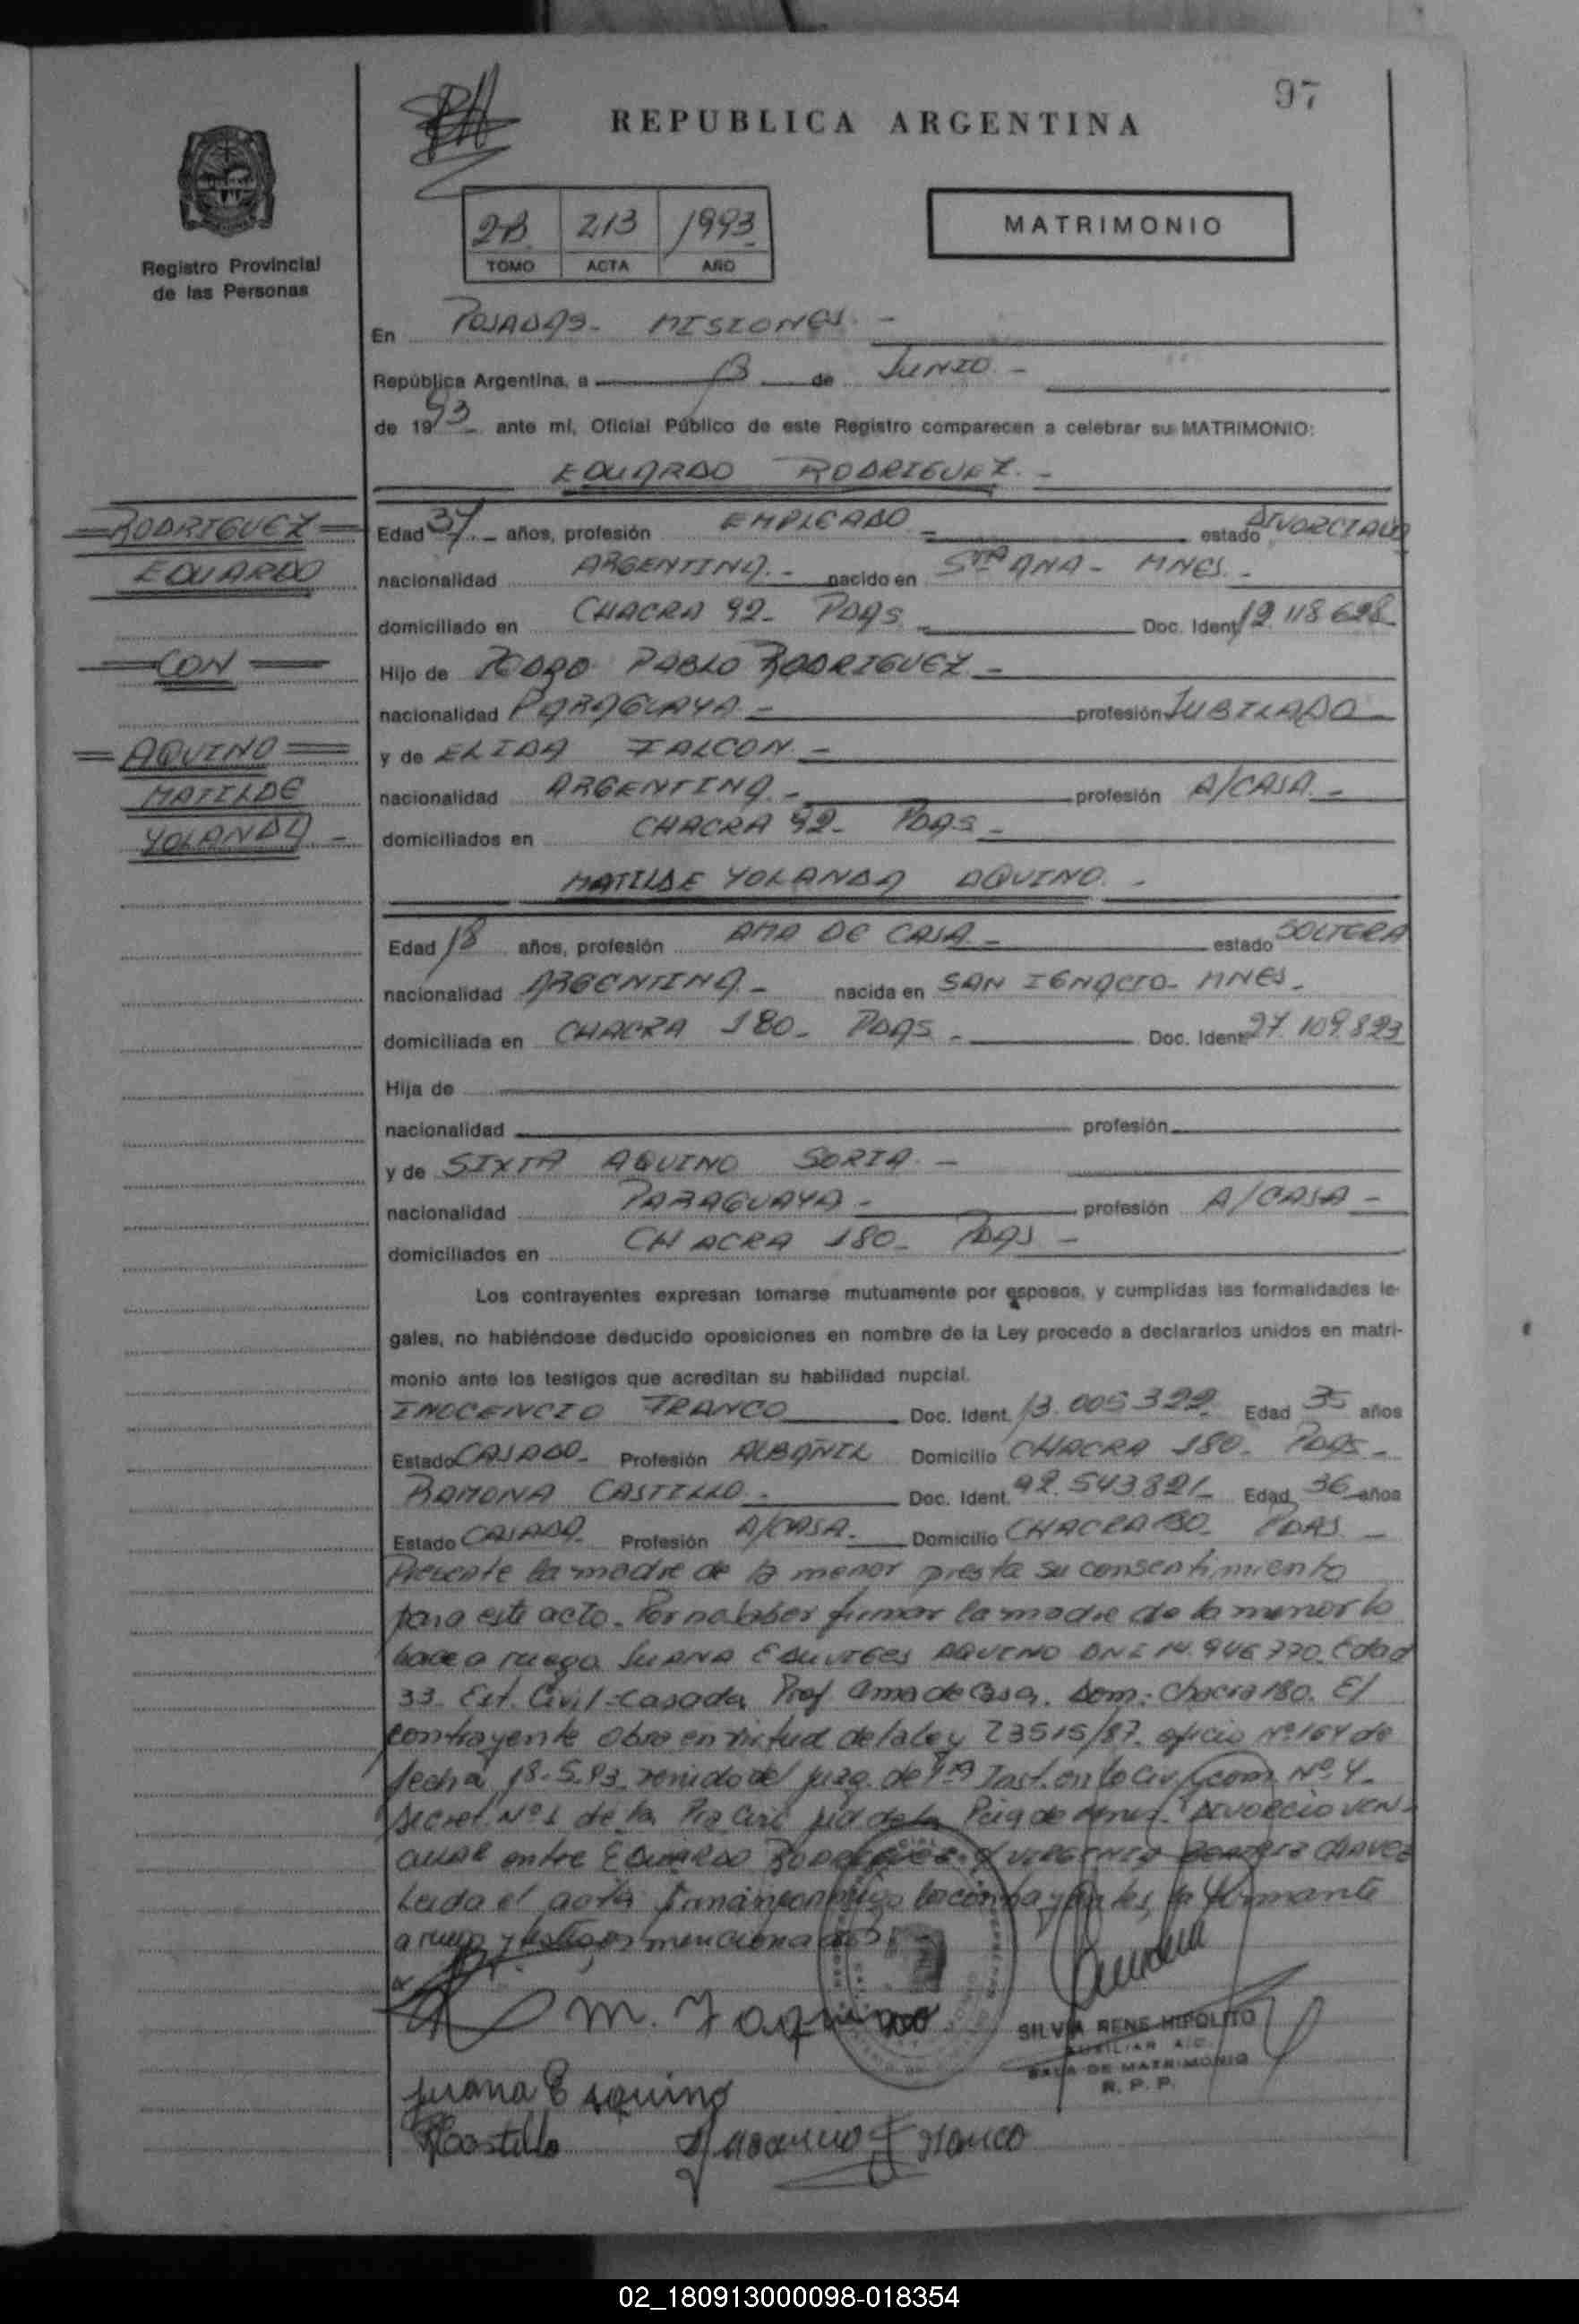 97
REPUBLICA ARGENTINA
2B 213 1993
TOMO ACTA AÑO
MATRIMONIO
Registro Provincial
de las Personas
En POSADAS - MISIONES. -
República Argentina, a de JUNIO -
de 1993 ante mí, Oficial Público de este Registro comparecen a celebrar su MATRIMONIO:
EDUARDO RODRIGUEZ. -
RODRIGUEZ
EDUARDO
CON
AQUINO
MATILDE
YOLANDA -
Edad 37 años, profesión EMPLEADO - estado DIVORCIADO
nacionalidad ARGENTINA - nacido en STA ANA - MNES. -
domiciliado en CHACRA 92 - PDAS - Doc. Ident. 12.118.628
Hijo de PEDRO PABLO RODRIGUEZ -
nacionalidad PARAGUAYA - profesión JUBILADO -
y de ELIDA FALCON. -
nacionalidad ARGENTINA. - profesión A/CASA. -
domiciliados en CHACRA 92 - PDAS -
MATILDE YOLANDA AQUINO. -
Edad 18 años, profesión AMA DE CASA. - estado SOLTERA
nacionalidad ARGENTINA. - nacida en SAN IGNACIO - MNES. -
domiciliada en CHACRA 180 - PDAS - Doc. Ident. 27.109.823
Hija de
nacionalidad profesión
y de SIXTA AQUINO SORIA. -
nacionalidad PARAGUAYA - profesión A/CASA -
domiciliados en CHACRA 180 - PDAS -
Los contrayentes expresan tomarse mutuamente por esposos, y cumplidas las formalidades le-
gales, no habiéndose deducido oposiciones en nombre de la Ley procedo a declararlos unidos en matri-
monio ante los testigos que acreditan su habilidad nupcial.
INOCENCIO FRANCO Doc. Ident. 13.005.322 Edad 35 años
Estado CASADO - Profesión ALBAÑIL Domicilio CHACRA 180 - PDAS -
RAMONA CASTILLO - Doc. Ident. 92.543.821 Edad 36 años
Estado CASADA Profesión A/CASA. Domicilio CHACRA 180 - PDAS -
Presente la madre de la menor presta su consentimiento
para este acto. Por no saber firmar la madre de la menor lo
hace a ruego JUANA EDUVIGES AQUINO DNI 14.946.770. Edad
33 Est. Civil = Casada Prof ama de casa. Dom: Chacra 180. El
contrayente obra en virtud de la ley 23515/87. oficio Nº 164 de
fecha 18-5-93 del Juzg. de 1ra Inst. en lo Civ. y com. Nº 4.
Secret. Nº 1 de la de la DIVORCIO VIN-
CULAR entre EDUARDO RODRIGUEZ y VIRGINIA BEATRIZ CHAVEZ
Leida el acta firman conmigo los contrayentes, la firmante
a ruego y testigos mencionados.
M. Y aquino
SILVIA RENE HIPOLITO
AUXILIAR A/C.
SALA DE MATRIMONIO
R. P. P.
Juana E Aquino
RCastillo Inocencio Franco
02_180913000098-018354